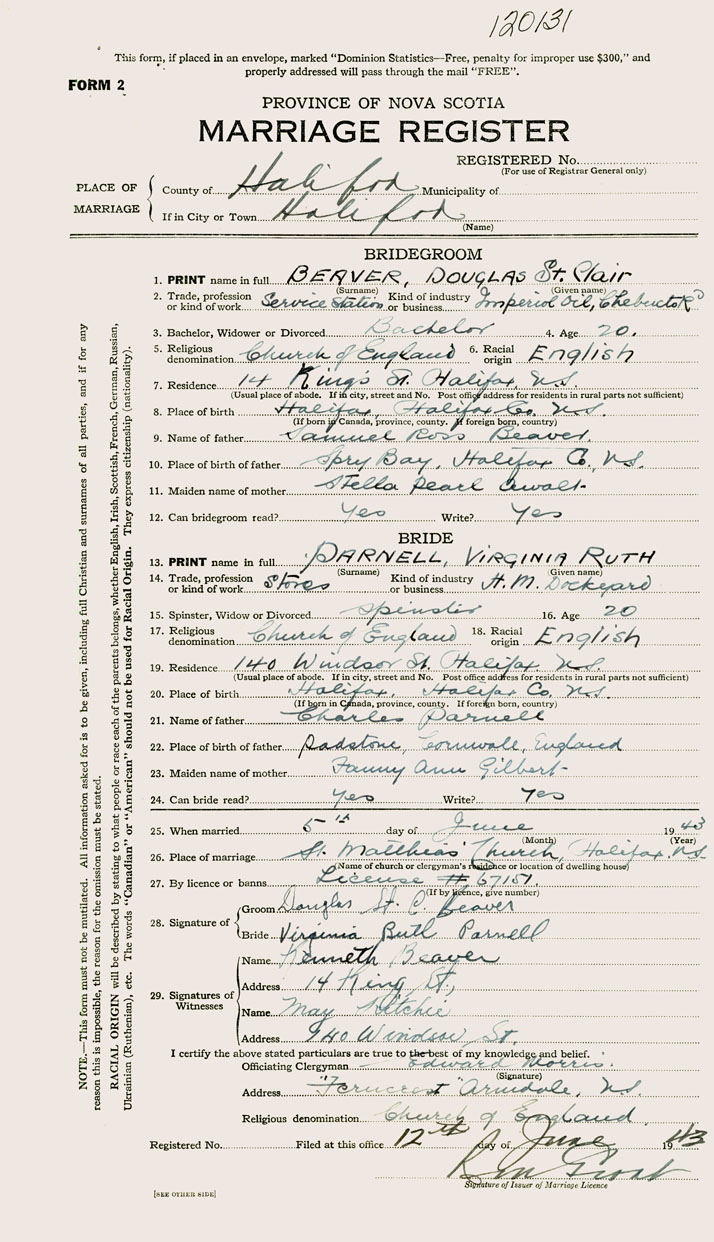 120131
This form, if placed in an envelope, marked "Dominion Statistics—Free, penalty for improper use $300," and
properly addressed will pass through the mail "FREE".
FORM 2
PROVINCE OF NOVA SCOTIA
MARRIAGE REGISTER
REGISTERED No.
(For use of Registrar General only)
PLACE OF MARRIAGE
County of Halifax Municipality of
If in City or Town Halifax
(Name)
BRIDEGROOM
1. PRINT name in full BEAVER, DOUGLAS St. Clair
(Surname) (Given name)
2. Trade, profession or kind of work Service Station Kind of industry or business Imperial Oil, Chebucto Rd
3. Bachelor, Widower or Divorced Bachelor 4. Age 20.
5. Religious denomination Church of England 6. Racial origin English
7. Residence 14 King's St. Halifax, N.S.
(Usual place of abode. If in city, street and No. Post office address for residents in rural parts not sufficient)
8. Place of birth Halifax, Halifax Co. N.S.
(If born in Canada, province, county. If foreign born, country)
9. Name of father Samuel Ross Beaver.
10. Place of birth of father Spry Bay, Halifax Co., N.S.
11. Maiden name of mother Stella Pearl
12. Can bridegroom read? Yes Write? Yes
BRIDE
13. PRINT name in full PARNELL, VIRGINIA RUTH
(Surname) (Given name)
14. Trade, profession or kind of work Stores Kind of industry or business H.M. Dockyard
15. Spinster, Widow or Divorced Spinster 16. Age 20
17. Religious denomination Church of England 18. Racial origin English
19. Residence 140 Windsor St. Halifax N.S.
(Usual place of abode. If in city, street and No. Post office address for residents in rural parts not sufficient)
20. Place of birth Halifax, Halifax Co. N.S.
(If born in Canada, province, county. If foreign born, country)
21. Name of father Charles Parnell
22. Place of birth of father Padstone, Cornwall, England
23. Maiden name of mother Fanny Ann Gilbert
24. Can bride read? Yes Write? Yes
25. When married 5th day of June 1943
(Month) (Year)
26. Place of marriage St. Matthias' Church, Halifax, N.S.
(Name of church or clergyman's residence or location of dwelling house)
27. By licence or banns License # 67151.
(If by licence, give number)
28. Signature of
Groom Douglas St. C. Beaver
Bride Virginia Ruth Parnell
29. Signatures of Witnesses
Name Kenneth Beaver
Address 14 King St.,
Name May Ritchie
Address 940 Windsor St.
I certify the above stated particulars are true to the best of my knowledge and belief.
Officiating Clergyman Edward Morris.
(Signature)
Address "Ferncrest" Armdale, N.S.
Religious denomination Church of England
Registered No. Filed at this office 12th day of June 1943
Signature of Issuer of Marriage Licence
[SEE OTHER SIDE]
NOTE.—This form must not be mutilated. All information asked for is to be given, including full Christian and surnames of all parties, and if for any
reason this is impossible, the reason for the omission must be stated.
RACIAL ORIGIN will be described by stating to what people or race each of the parents belongs, whether English, Irish, Scottish, French, German, Russian,
Ukrainian (Ruthenian), etc. The words "Canadian" or "American" should not be used for Racial Origin. They express citizenship (nationality).